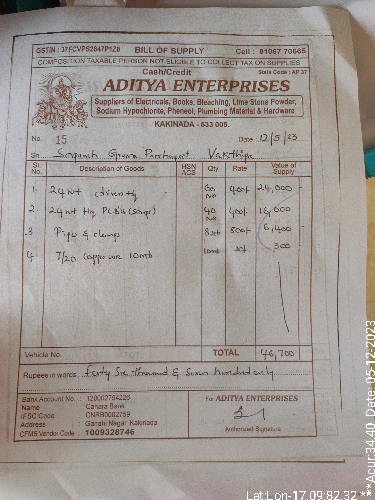 GSTIN : 37FCVPS2847P1Z8 BILL OF SUPPLY Cell : 81067 70665
COMPOSITION TAXABLE PERSON NOT ELIGIBLE TO COLLECT TAX ON SUPPLIES
Cash/Credit State Code : AP 37
ADITYA ENTERPRISES
Suppliers of Electricals, Books, Bleaching, Lime Stone Powder,
Sodium Hypochlorite, Pheneol, Plumbing Material & Hardware
KAKINADA - 533 005.
No. 15 Date : 12/5/23
Sri Sarpanch Grama Panchayat
Sl. No. Description of Goods HSN ACS Qty Rate Value of Supply
1. 24 wt 60 No 400/- 24,000
2. 24 wt 40 No 400/- 16,000
3 Pipes & clamps 8 set 800/- 6,400
4. 7/20 copper wire 10 mts 10mts 30/- 300
Vehicle No. TOTAL 46,700
Rupees in words Forty Six thousand & Seven hundred only
Bank Account No. : 120002764226
Name : Canara Bank
IFSC Code : CNRB0002759
Address : Gandhi Nagar, Kakinada
CFMS Vendor Code : 1009328746
For ADITYA ENTERPRISES
Authorised Signature
Lat:Lon-17.09:82.32
***Acur:34.40 Date: 05-12-2023